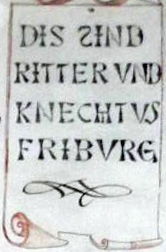 DIS SIND
RITTER UND
KNECHT US
FRIBURG